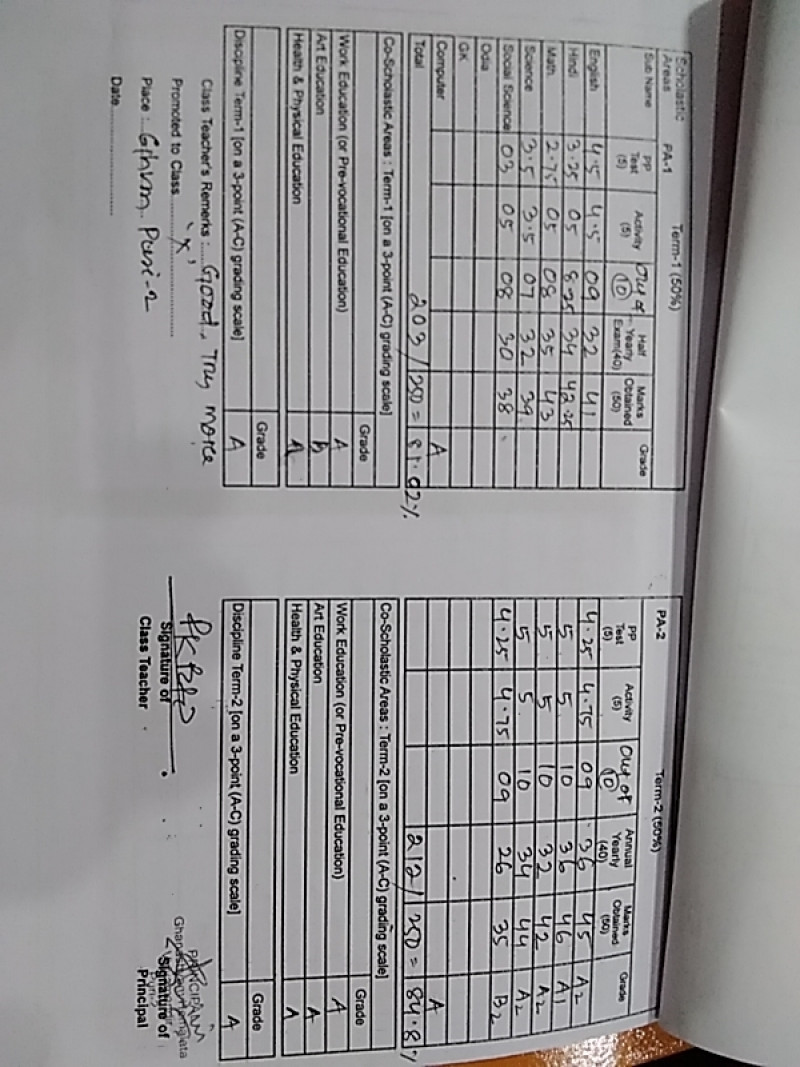 Scholastic Areas Term-1 (50%)
PA-1
Sub Name PP Test (5) Activity (5) Out of (10) Half Yearly Exam(40) Marks Obtained (50) Grade
English 4.5 4.5 09 32 41
Hindi 3.25 05 8.25 34 42.25
Math 2.75 05 08 35 43
Science 3.5 3.5 07 32 39
Social Science 03 05 08 30 38
Odia
GK
Computer A
Total 203/250 = 81.02%
Co-Scholastic Areas : Term-1 [on a 3-point (A-C) grading scale]
Grade
Work Education (or Pre-vocational Education) A
Art Education B
Health & Physical Education A
Grade
Discipline Term-1 [on a 3-point (A-C) grading scale] A
Class Teacher's Remarks : Good, Try more
Promoted to Class 'X'
Place : Puri-2
Date
Term-2 (50%)
PA-2
PP Test (5) Activity (5) Out of (10) Annual Yearly (40) Marks Obtained (50) Grade
4.25 4.75 09 36 45 A2
5 5 10 36 46 A1
5 5 10 32 42 A2
5 5 10 34 44 A2
4.25 4.75 09 26 35 B2
A
212/250 = 84.8%
Co-Scholastic Areas : Term-2 [on a 3-point (A-C) grading scale]
Grade
Work Education (or Pre-vocational Education) A
Art Education A
Health & Physical Education A
Grade
Discipline Term-2 [on a 3-point (A-C) grading scale] A
Signature of
Class Teacher
PRINCIPAL
Signature of
Principal